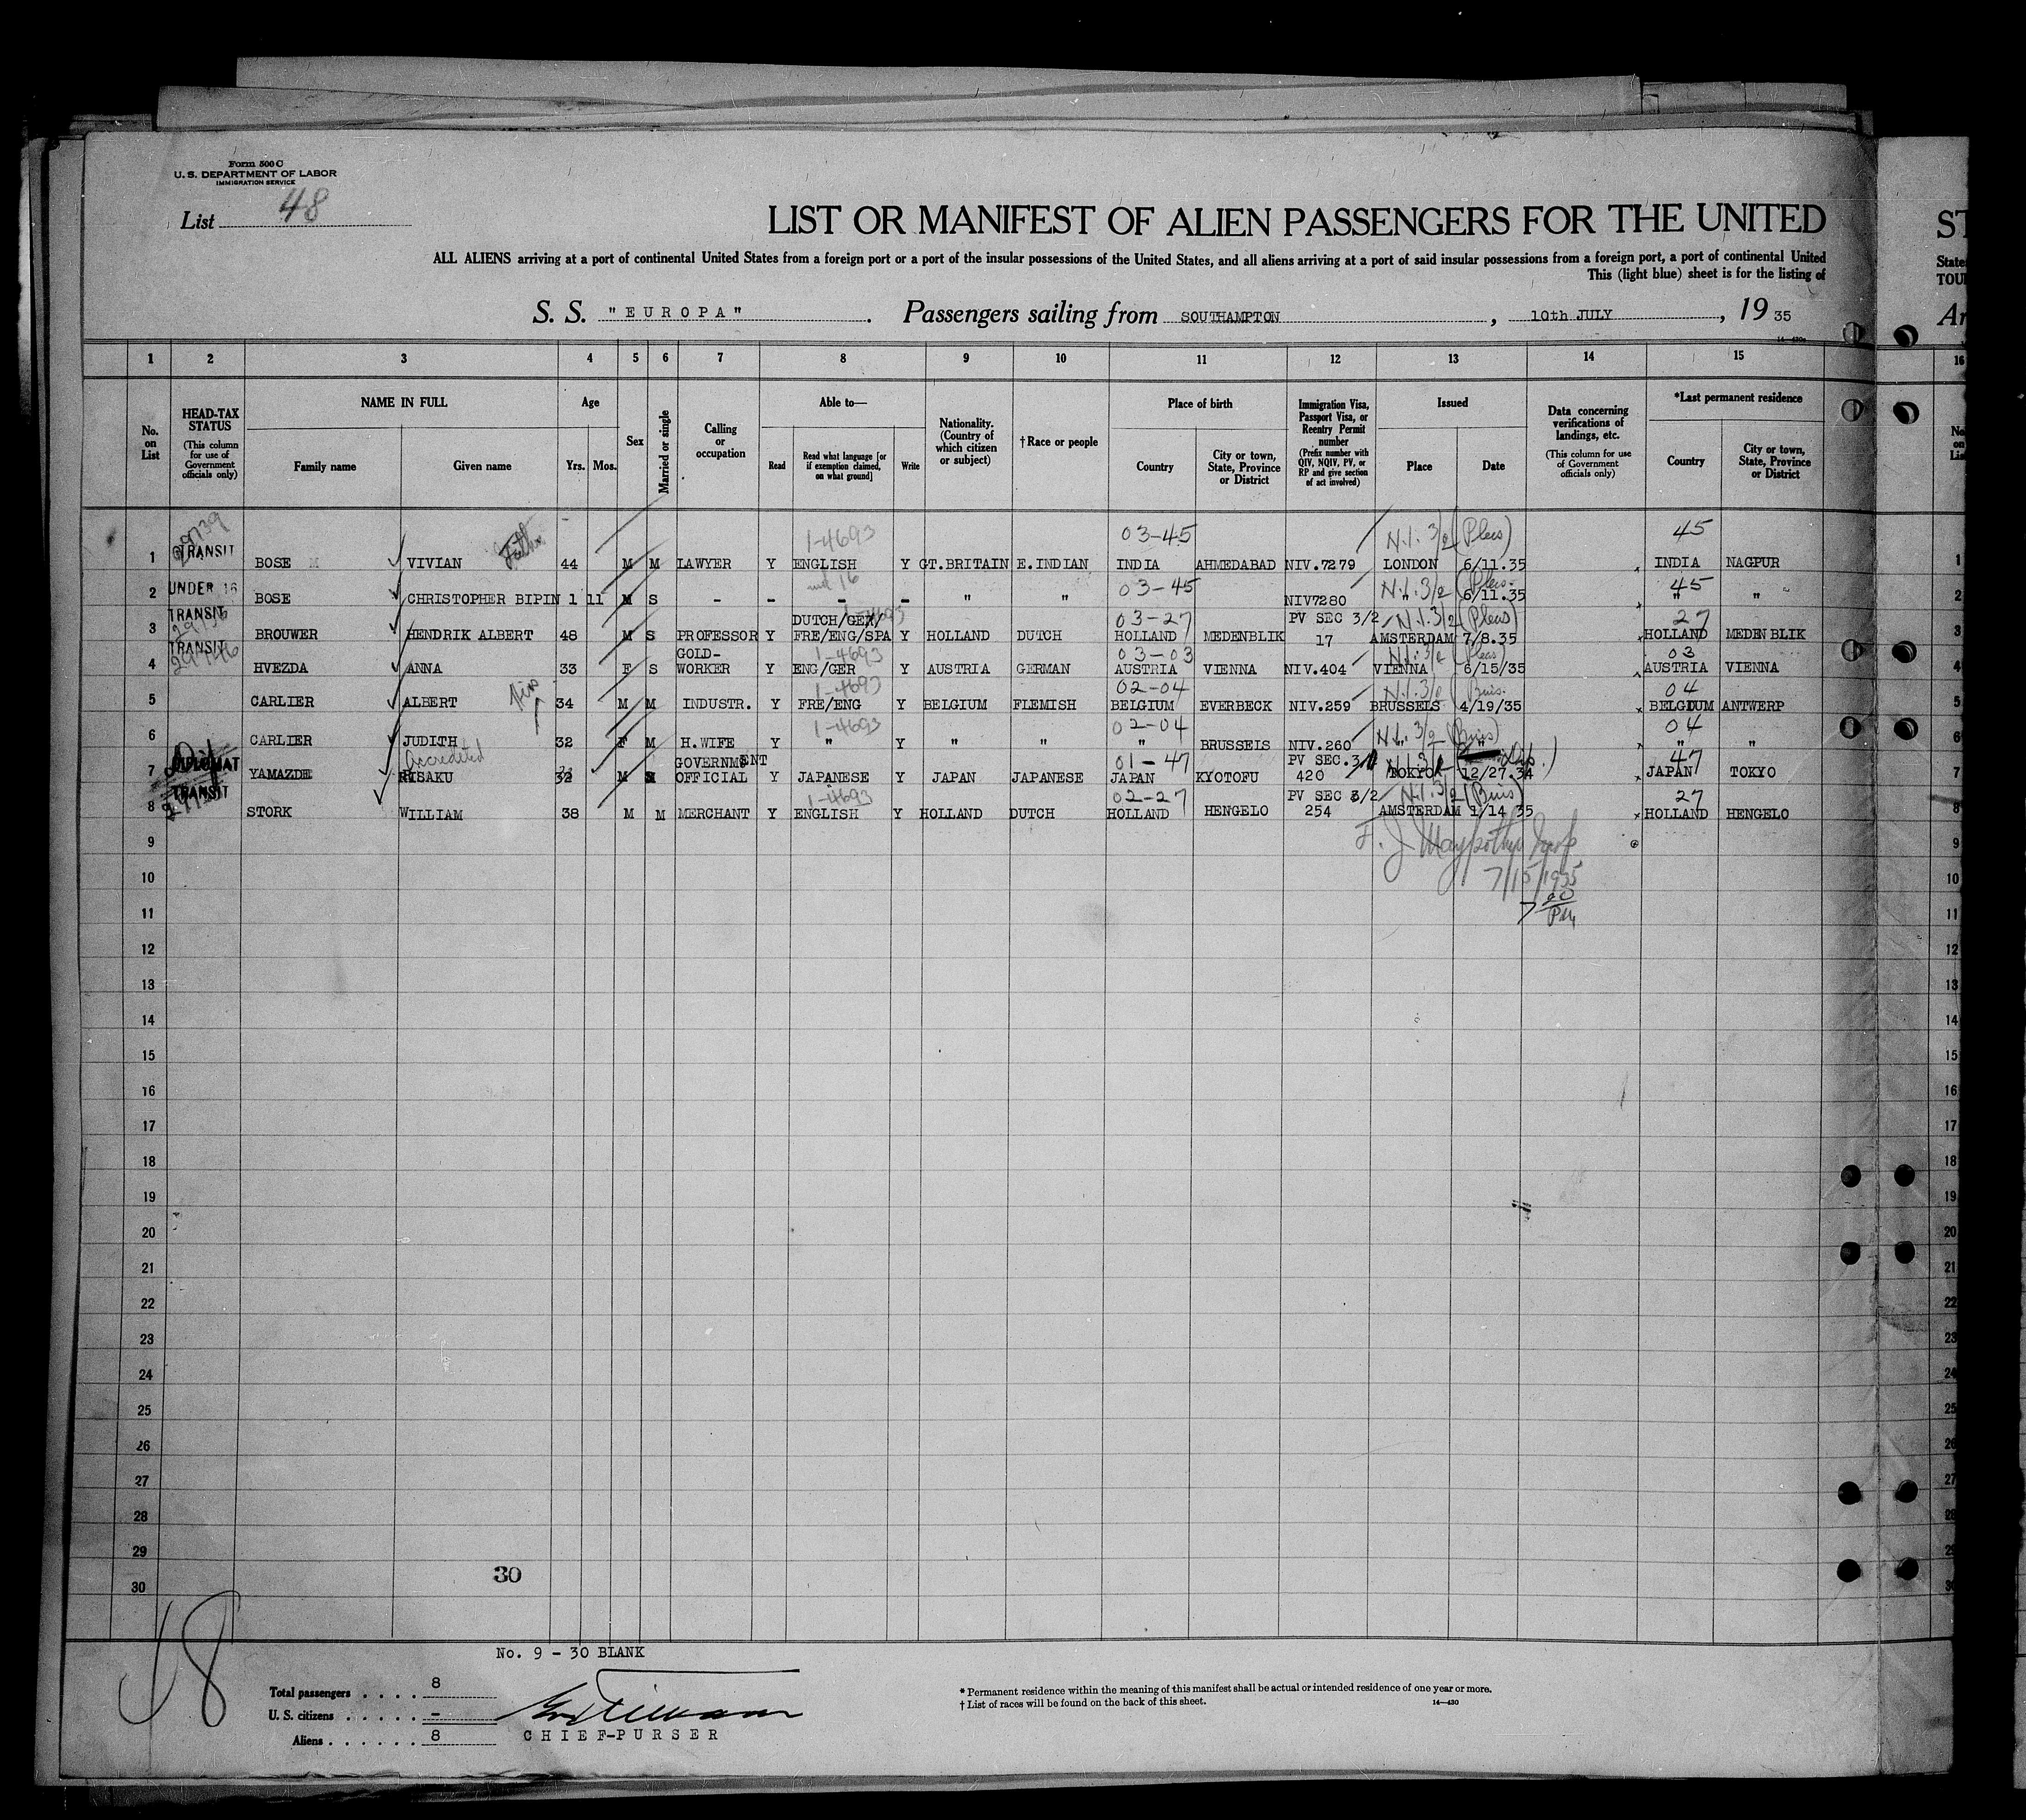 Form 500 C
U. S. DEPARTMENT OF LABOR
IMMIGRATION SERVICE
List 48
LIST OR MANIFEST OF ALIEN PASSENGERS FOR THE UNITED
ST
ALL ALIENS arriving at a port of continental United States from a foreign port or a port of the insular possessions of the United States, and all aliens arriving at a port of said insular possessions from a foreign port, a port of continental United
State
This (light blue) sheet is for the listing of
TOU
S. S. "EUROPA". Passengers sailing from SOUTHAMPTON, 10th JULY, 19 35
Ar
1 2 3 4 5 6 7 8 9 10 11 12 13 14 15 16
No. on List
HEAD-TAX STATUS (This column for use of Government officials only)
NAME IN FULL
Family name Given name
Age
Yrs. Mos.
Sex
Married or single
Calling or occupation
Able to—
Read
Read what language [or if exemption claimed, on what ground]
Write
Nationality. (Country of which citizen or subject)
†Race or people
Place of birth
Country
City or town, State, Province or District
Immigration Visa, Passport Visa, or Reentry Permit number (Prefix number with QIV, NQIV, PV, or RP and give section of act involved)
Issued
Place Date
Data concerning verifications of landings, etc. (This column for use of Government officials only)
*Last permanent residence
Country
City or town, State, Province or District
1-4693 03-45 N.I. 3/2 (Pleas) 45
1 TRANSIT BOSE VIVIAN Father 44 M M LAWYER Y ENGLISH Y GT.BRITAIN E.INDIAN INDIA AHMEDABAD NIV.7279 LONDON 6/11.35 INDIA NAGPUR 1
03-45 N.I. 3/2 45
2 UNDER 16 BOSE CHRISTOPHER BIPIN 1 11 M S - - - - " " NIV7280 " 6/11.35 " " 2
03-27 N.I. 3/2 (Pleas) 27
3 TRANSIT BROUWER HENDRIK ALBERT 48 M S PROFESSOR Y DUTCH/GEX/ FRE/ENG/SPA Y HOLLAND DUTCH HOLLAND MEDENBLIK PV SEC 3/2 17 AMSTERDAM 7/8.35 HOLLAND MEDENBLIK 3
1-4693 03-03 N.I. 3/2 03
4 TRANSIT HVEZDA ANNA 33 F S GOLD-WORKER Y ENG/GER Y AUSTRIA GERMAN AUSTRIA VIENNA NIV.404 VIENNA 6/15/35 AUSTRIA VIENNA 4
1-4693 02-04 N.I. 3/2 04
5 CARLIER ALBERT 34 M M INDUSTR. Y FRE/ENG Y BELGIUM FLEMISH BELGIUM EVERBECK NIV.259 BRUSSELS 4/19/35 BELGIUM ANTWERP 5
1-4693 02-04 N.I. 3/2 (Buis) 04
6 CARLIER JUDITH 32 F M H.WIFE Y " Y " " " BRUSSELS NIV.260 " " " " 6
Accredited 01-47 47
7 DIPLOMAT YAMAZDE RISAKU 32 M GOVERNMENT OFFICIAL Y JAPANESE Y JAPAN JAPANESE JAPAN KYOTOFU PV SEC.3/1 420 TOKYO 12/27.34 JAPAN TOKYO 7
1-4693 02-27 N.I. 3/2 (Buis) 27
8 TRANSIT STORK WILLIAM 38 M M MERCHANT Y ENGLISH Y HOLLAND DUTCH HOLLAND HENGELO PV SEC 3/2 254 AMSTERDAM 1/14 35 HOLLAND HENGELO 8
9 9
7/15/1935
10 10
7 00 PM
11 11
12 12
13 13
14 14
15 15
16 16
17 17
18 18
19 19
20 20
21 21
22 22
23 23
24 24
25 25
26 26
27 27
28 28
29 29
30
30 30
No. 9 - 30 BLANK
48
Total passengers . . . . 8
U. S. citizens . . . . . -
Aliens . . . . . . 8
CHIEF-PURSER
* Permanent residence within the meaning of this manifest shall be actual or intended residence of one year or more.
† List of races will be found on the back of this sheet.
14—430